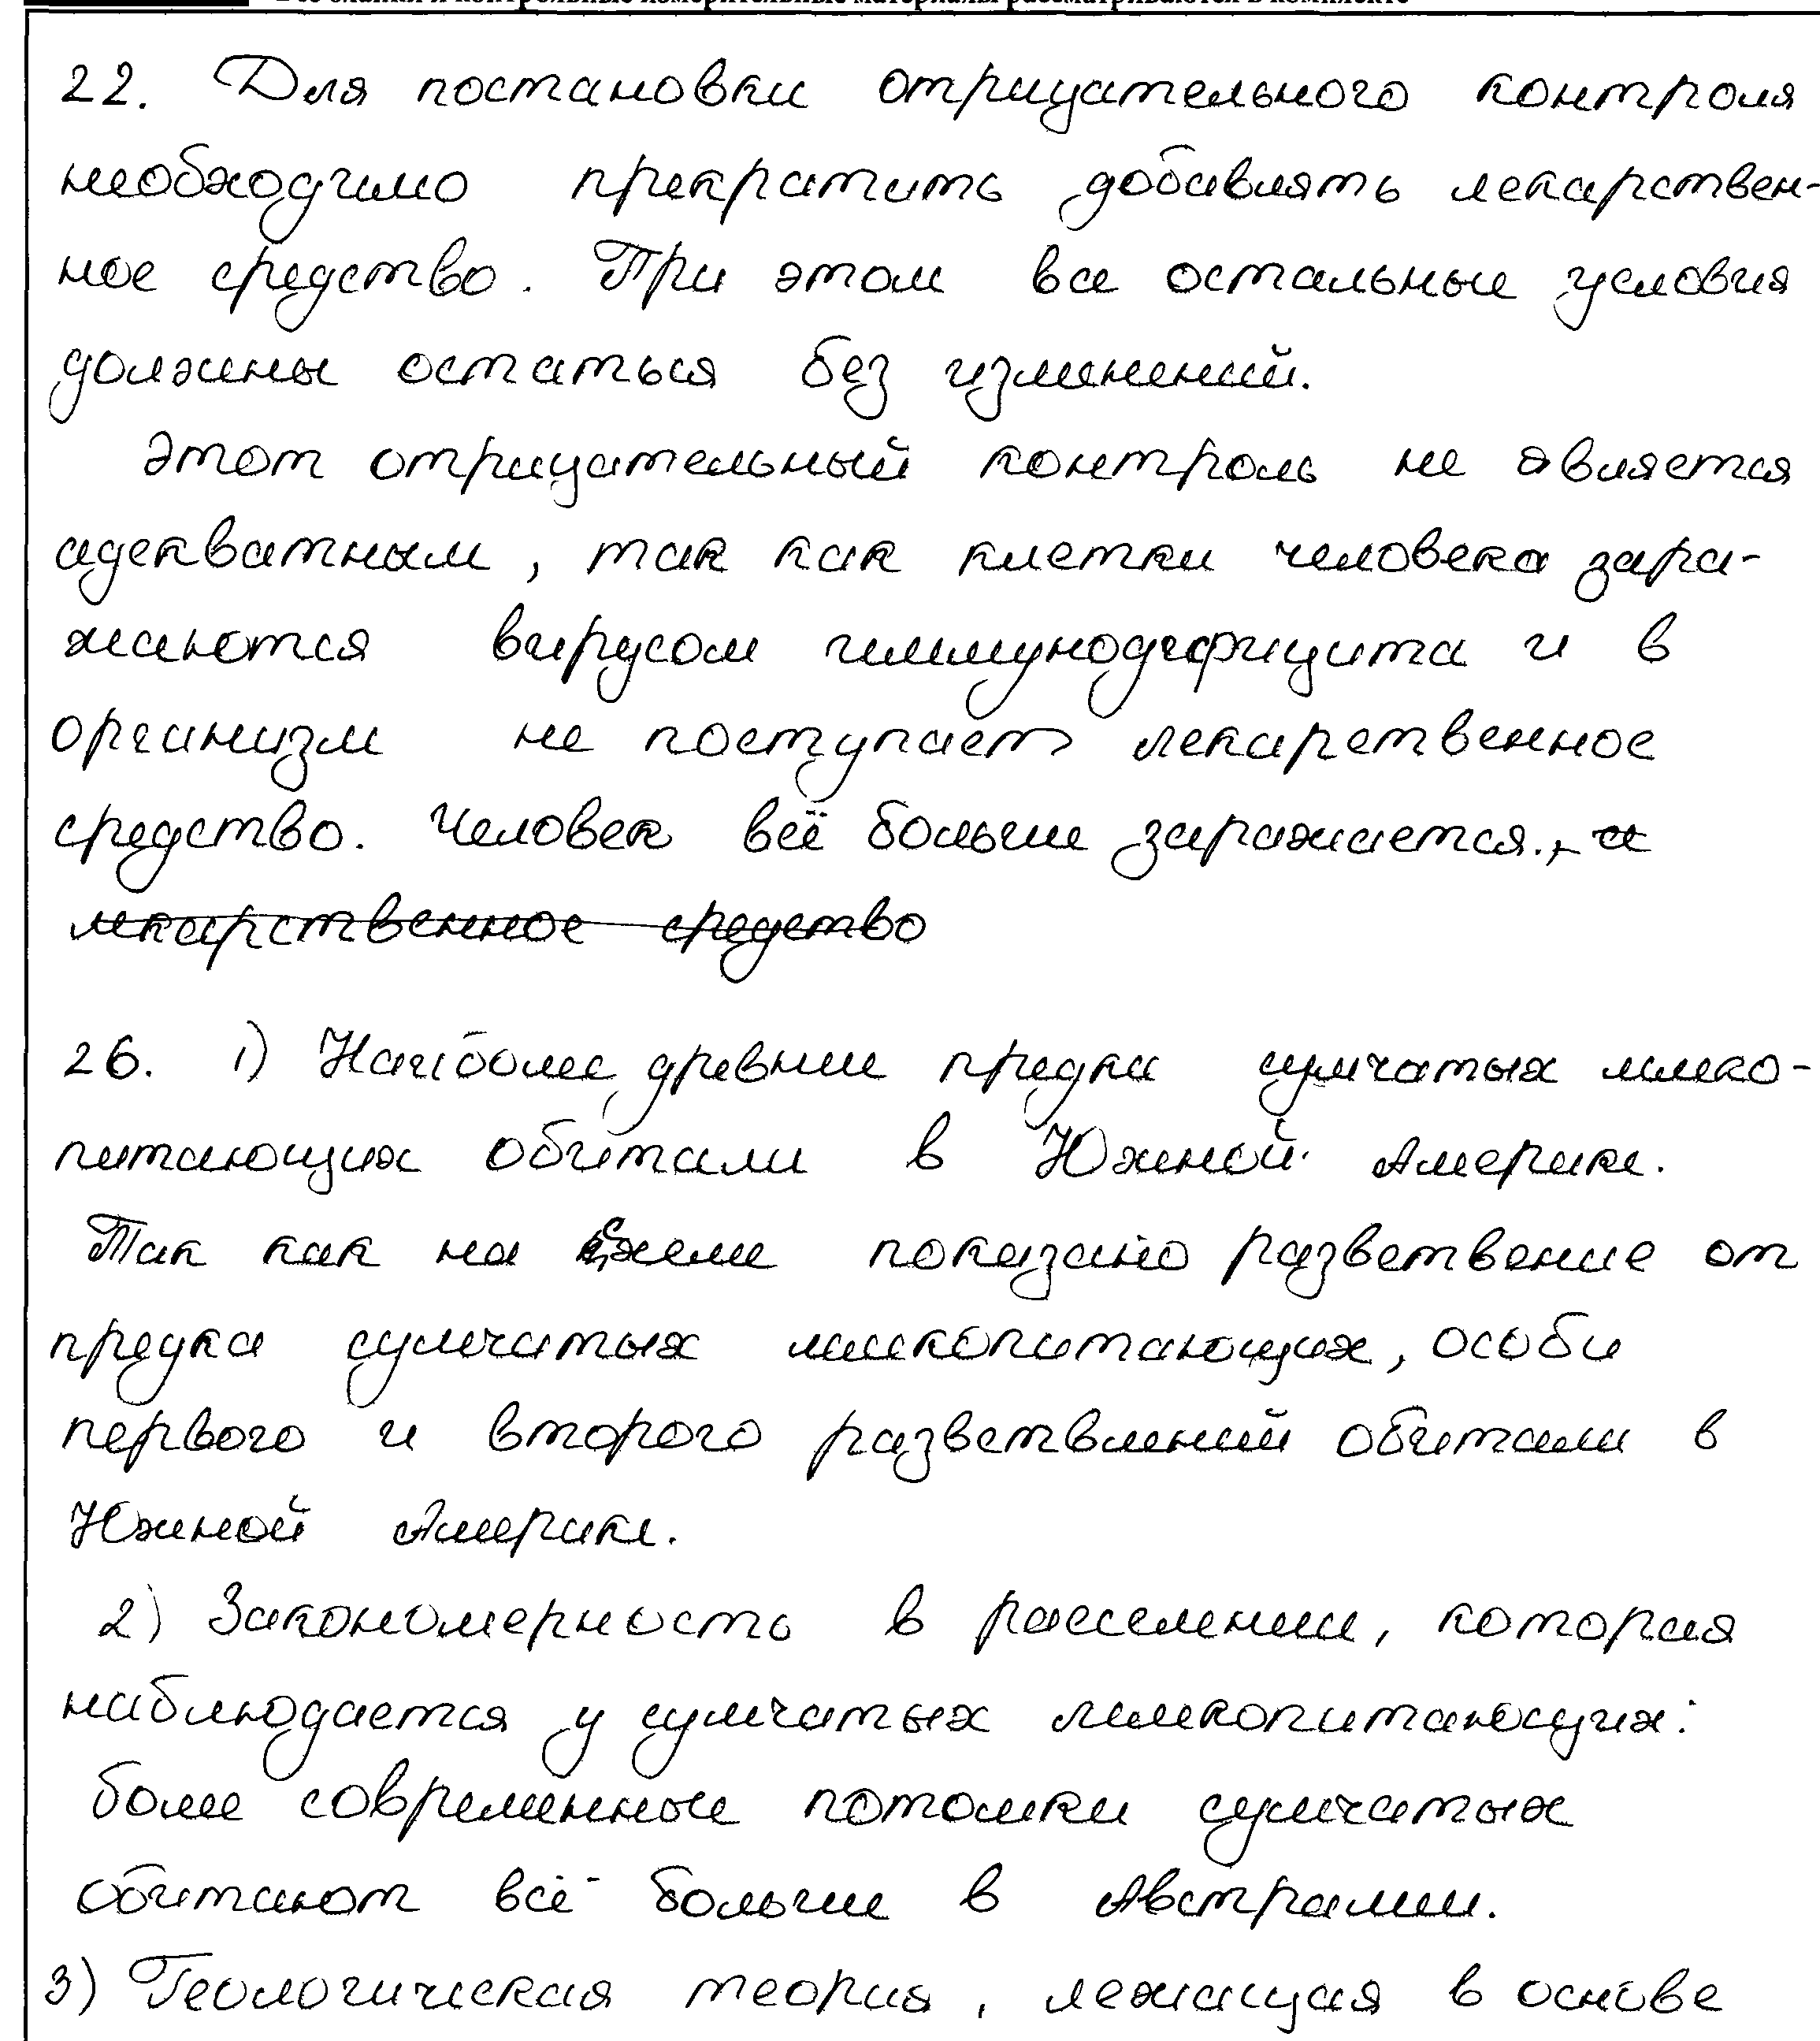 Все бланки и контрольные измерительные материалы рассматриваются в комплекте
22. Для постановки отрицательного контроля
необходимо прекратить добавлять лекарствен-
ное средство. При этом все остальные условия
должны остаться без изменений.
Этот отрицательный контроль не является
адекватным, так как клетки человека зара-
жаются вирусом иммунодефицита и в
организм не поступает лекарственное
средство. Человек всё больше заражается., а
лекарственное средство
26. 1) Наиболее древние предки сумчатых млеко-
питающих обитали в Южной Америке.
Так как на схеме показано разветвение от
предка сумчатых млекопитающих, особи
первого и второго разветвлений обитали в
Южной Америке.
2) Закономерность в расселении, которая
наблюдается у сумчатых млекопитающих:
более современные потомки сумчатых
обитают всё больше в Австралии.
3) Геологическая теория, лежащая в основе